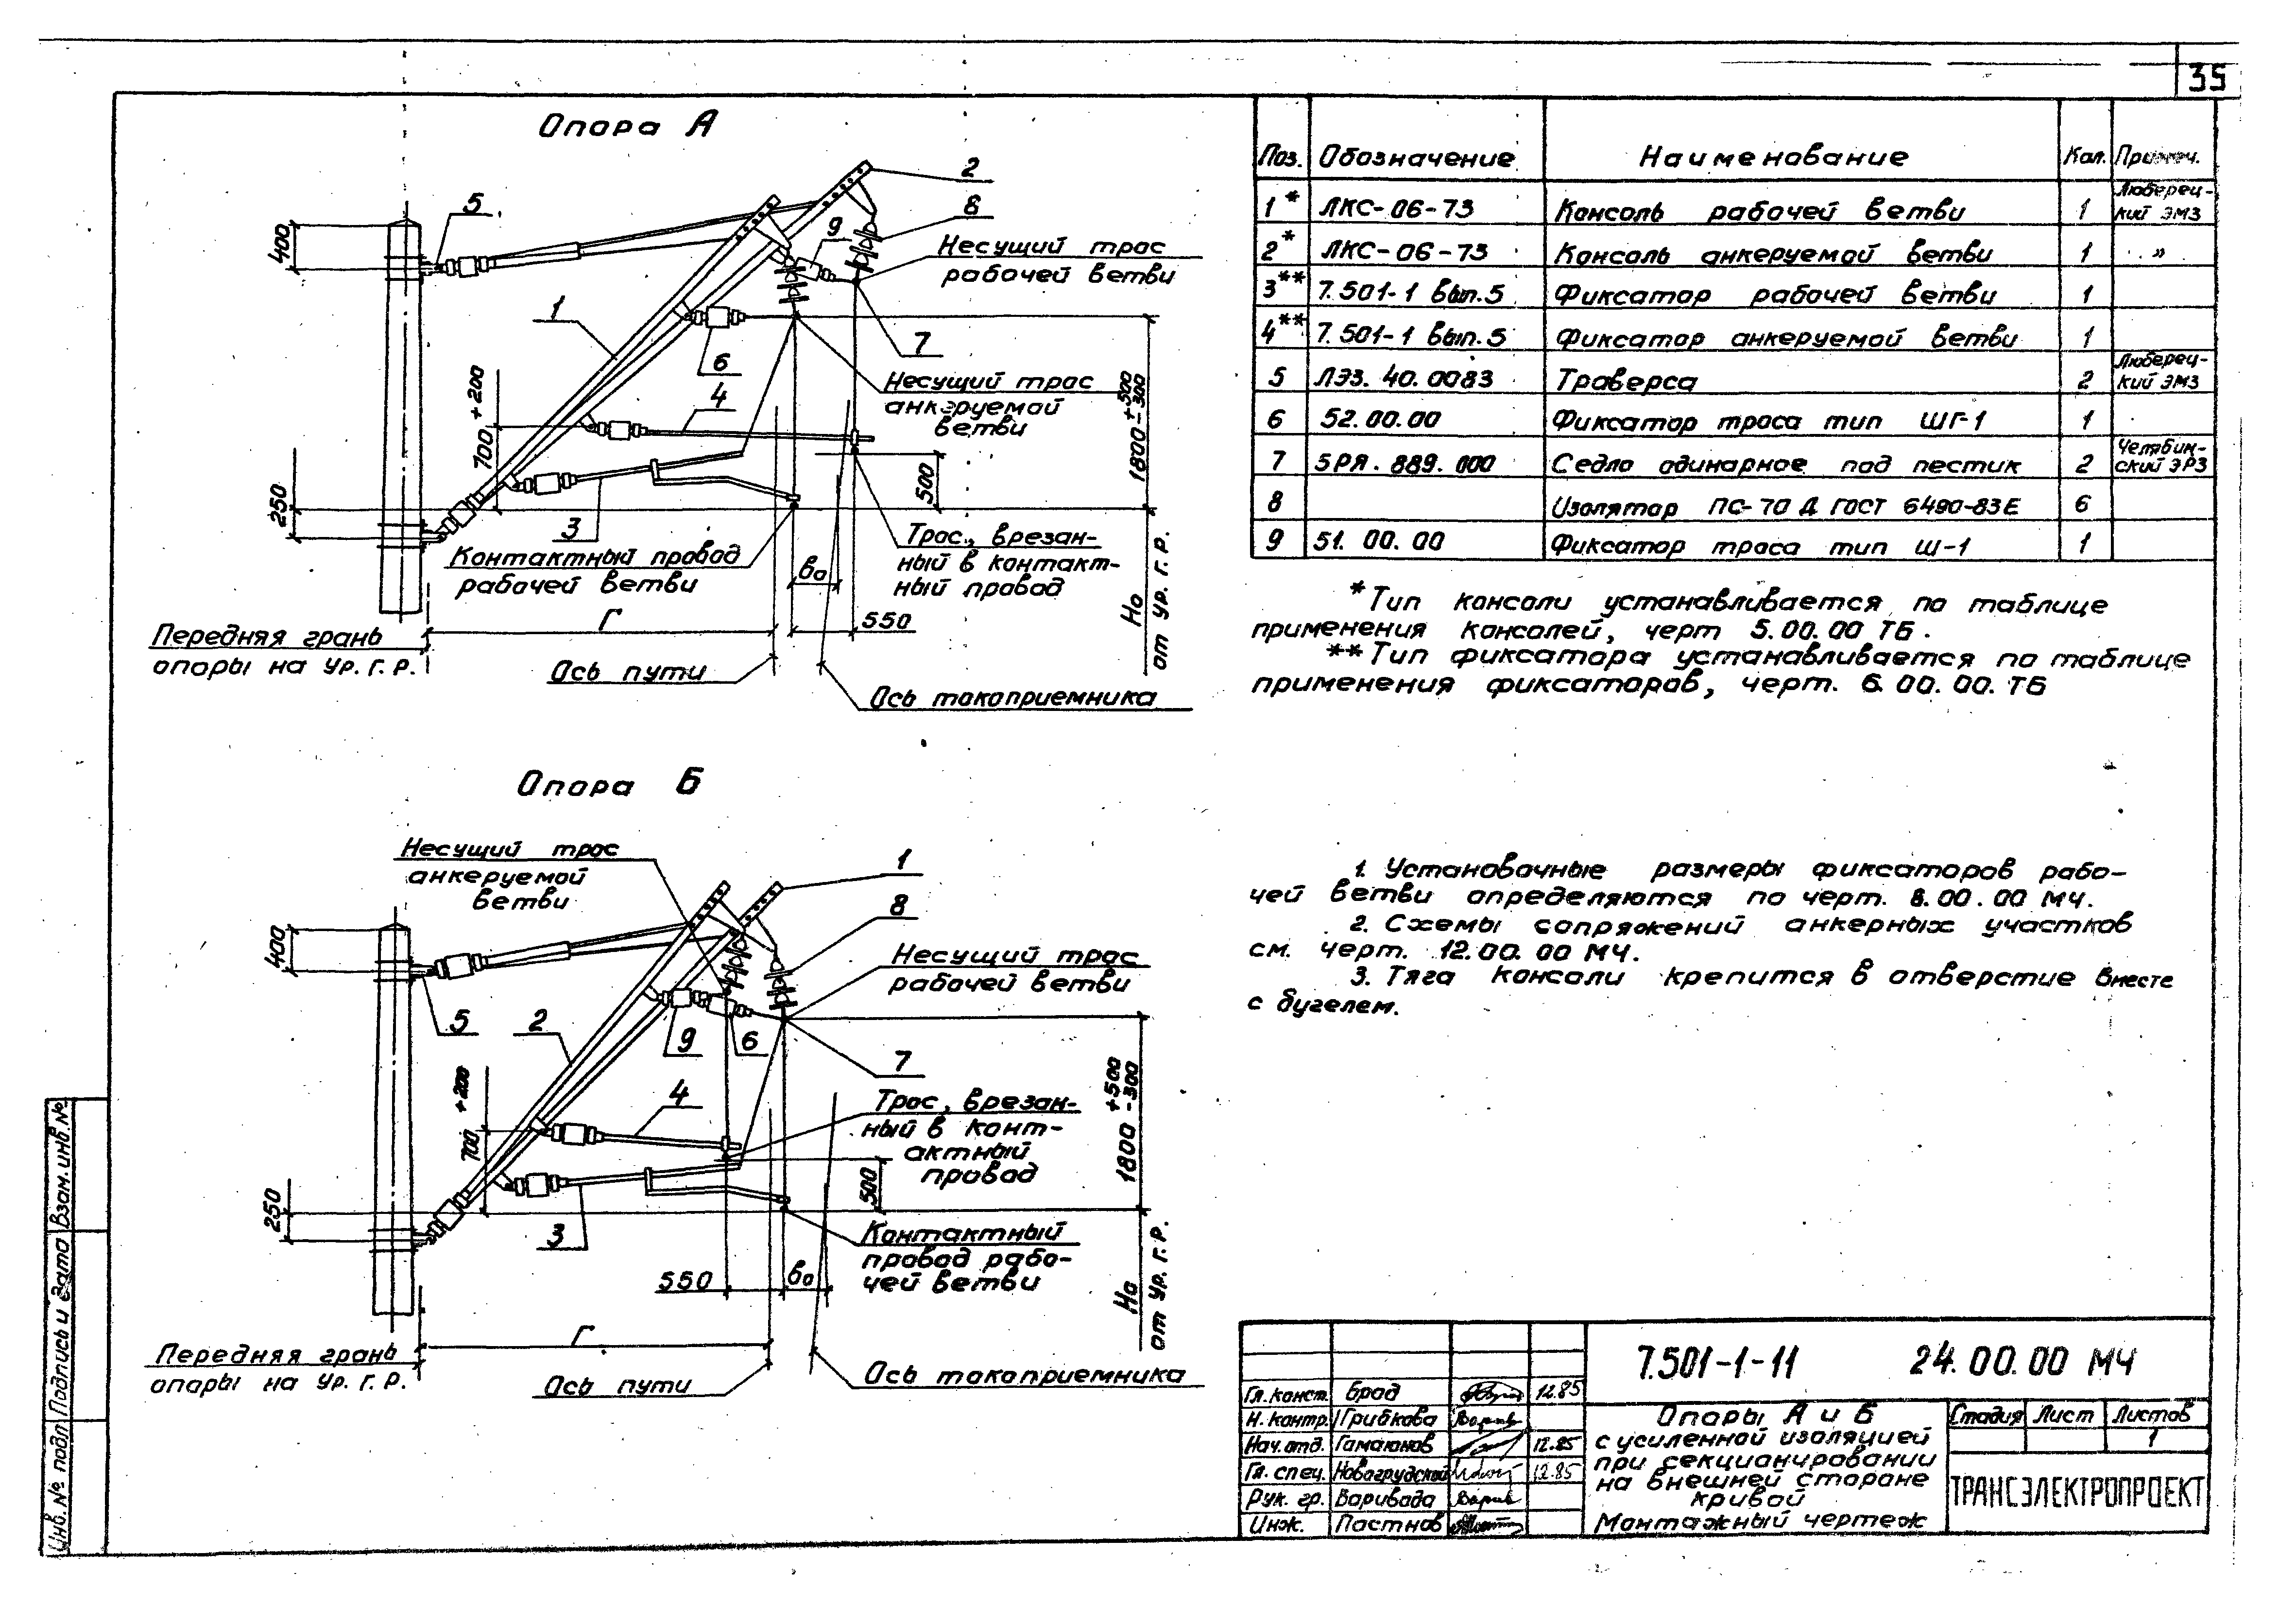 35
Опора А
2
5
8
9
400
Несущий трос
рабочей ветви
1
7
6
Несущий трос
анкеруемой
ветви
4
700 +200
1800 +500 -300
500
250
3
Контактный провод
рабочей ветви
Трос, врезан-
ный в контакт-
ный провод
во
Г
550
Но
от ур. г. р.
Передняя грань
опоры на ур. г. р.
Ось пути
Ось токоприемника
Опора Б
Несущий трос
анкеруемой
ветви
1
8
400
Несущий трос
рабочей ветви
5
2
9
6
7
700 +200
4
Трос, врезан-
ный в конт-
актный
провод
1800 +500 -300
500
250
3
Контактный
провод рабо-
чей ветви
550
во
Но
от ур. г. р.
Г
Передняя грань
опоры на ур. г. р.
Ось пути
Ось токоприемника
Поз. Обозначение Наименование Кол. Примеч.
1* ЛКС-06-73 Консоль рабочей ветви 1 Люберец-
кий ЭМЗ
2* ЛКС-06-73 Консоль анкеруемой ветви 1 "
3** 7.501-1 вып.5 Фиксатор рабочей ветви 1
4** 7.501-1 вып.5 Фиксатор анкеруемой ветви 1
5 ЛЭЗ.40.0083 Траверса 2 Люберец-
кий ЭМЗ
6 52.00.00 Фиксатор троса тип ШГ-1 1
7 5РЯ.889.000 Седло одинарное под пестик 2 Челябин-
ский ЭРЗ
8 Изолятор ПС-70 Д ГОСТ 6490-83Е 6
9 51.00.00 Фиксатор троса тип Ш-1 1
* Тип консоли устанавливается по таблице
применения консолей, черт 5.00.00 ТБ.
** Тип фиксатора устанавливается по таблице
применения фиксаторов, черт. 6.00.00.ТБ
1. Установочные размеры фиксаторов рабо-
чей ветви определяются по черт. 8.00.00 МЧ.
2. Схемы сопряжений анкерных участков
см. черт. 12.00.00 МЧ.
3. Тяга консоли крепится в отверстие вместе
с бугелем.
7.501-1-11 24.00.00 МЧ
Гл. конст. Брод 12.85
Н. контр. Грибкова
Нач. отд. Гамаюнов 12.85
Гл. спец. Новогрудский 12.85
Рук. гр. Варивода
Инж. Постнов
Опоры А и Б
с усиленной изоляцией
при секционировании
на внешней стороне
кривой
Монтажный чертеж
Стадия Лист Листов
1
ТРАНСЭЛЕКТРОПРОЕКТ
Инв. № подл. Подпись и дата Взам. инв. №